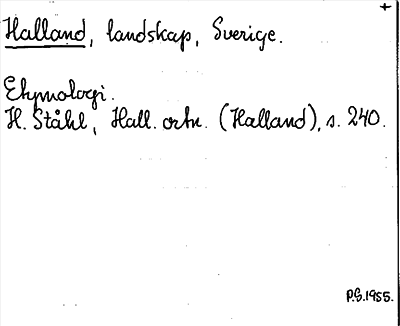 +
Halland, landskap, Sverige.
Etymologi.
H. Ståhl, Hall. ortn. (Halland), s. 240.
P.G.1955.